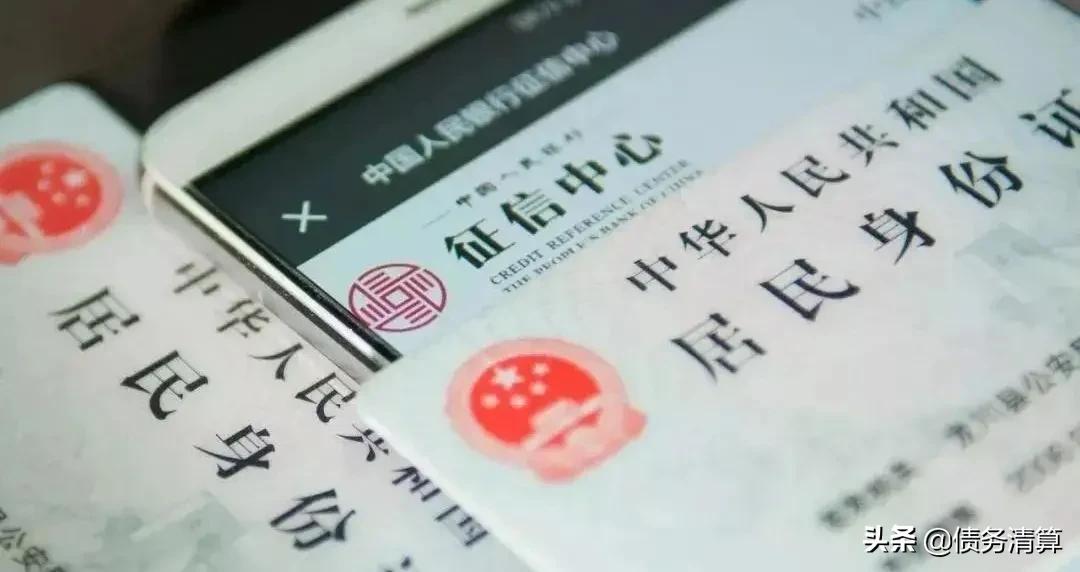 中国人民银行征信中心
中国人民银行
征信中心
CREDIT REFERENCE CENTER
THE PEOPLE'S BANK OF CHINA
中华人民共和国
居民身份证
龙川县公安局
中华人民共和国
居民身份
公安局
头条 @债务清算